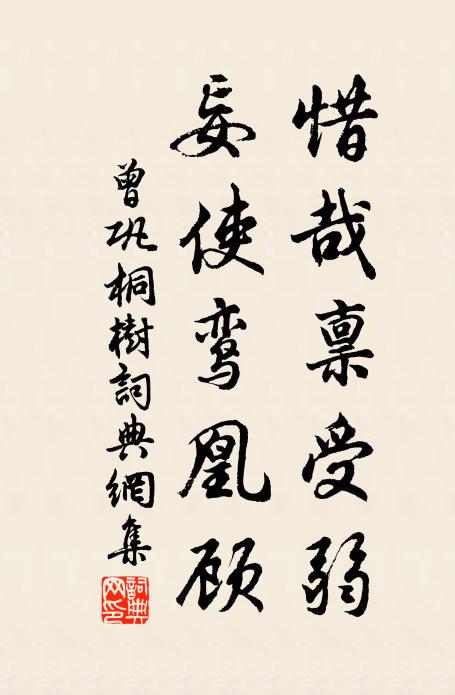 惜哉禀受弱
妄使鸾凰顾
曾巩桐樹詞典網集
詞典网印